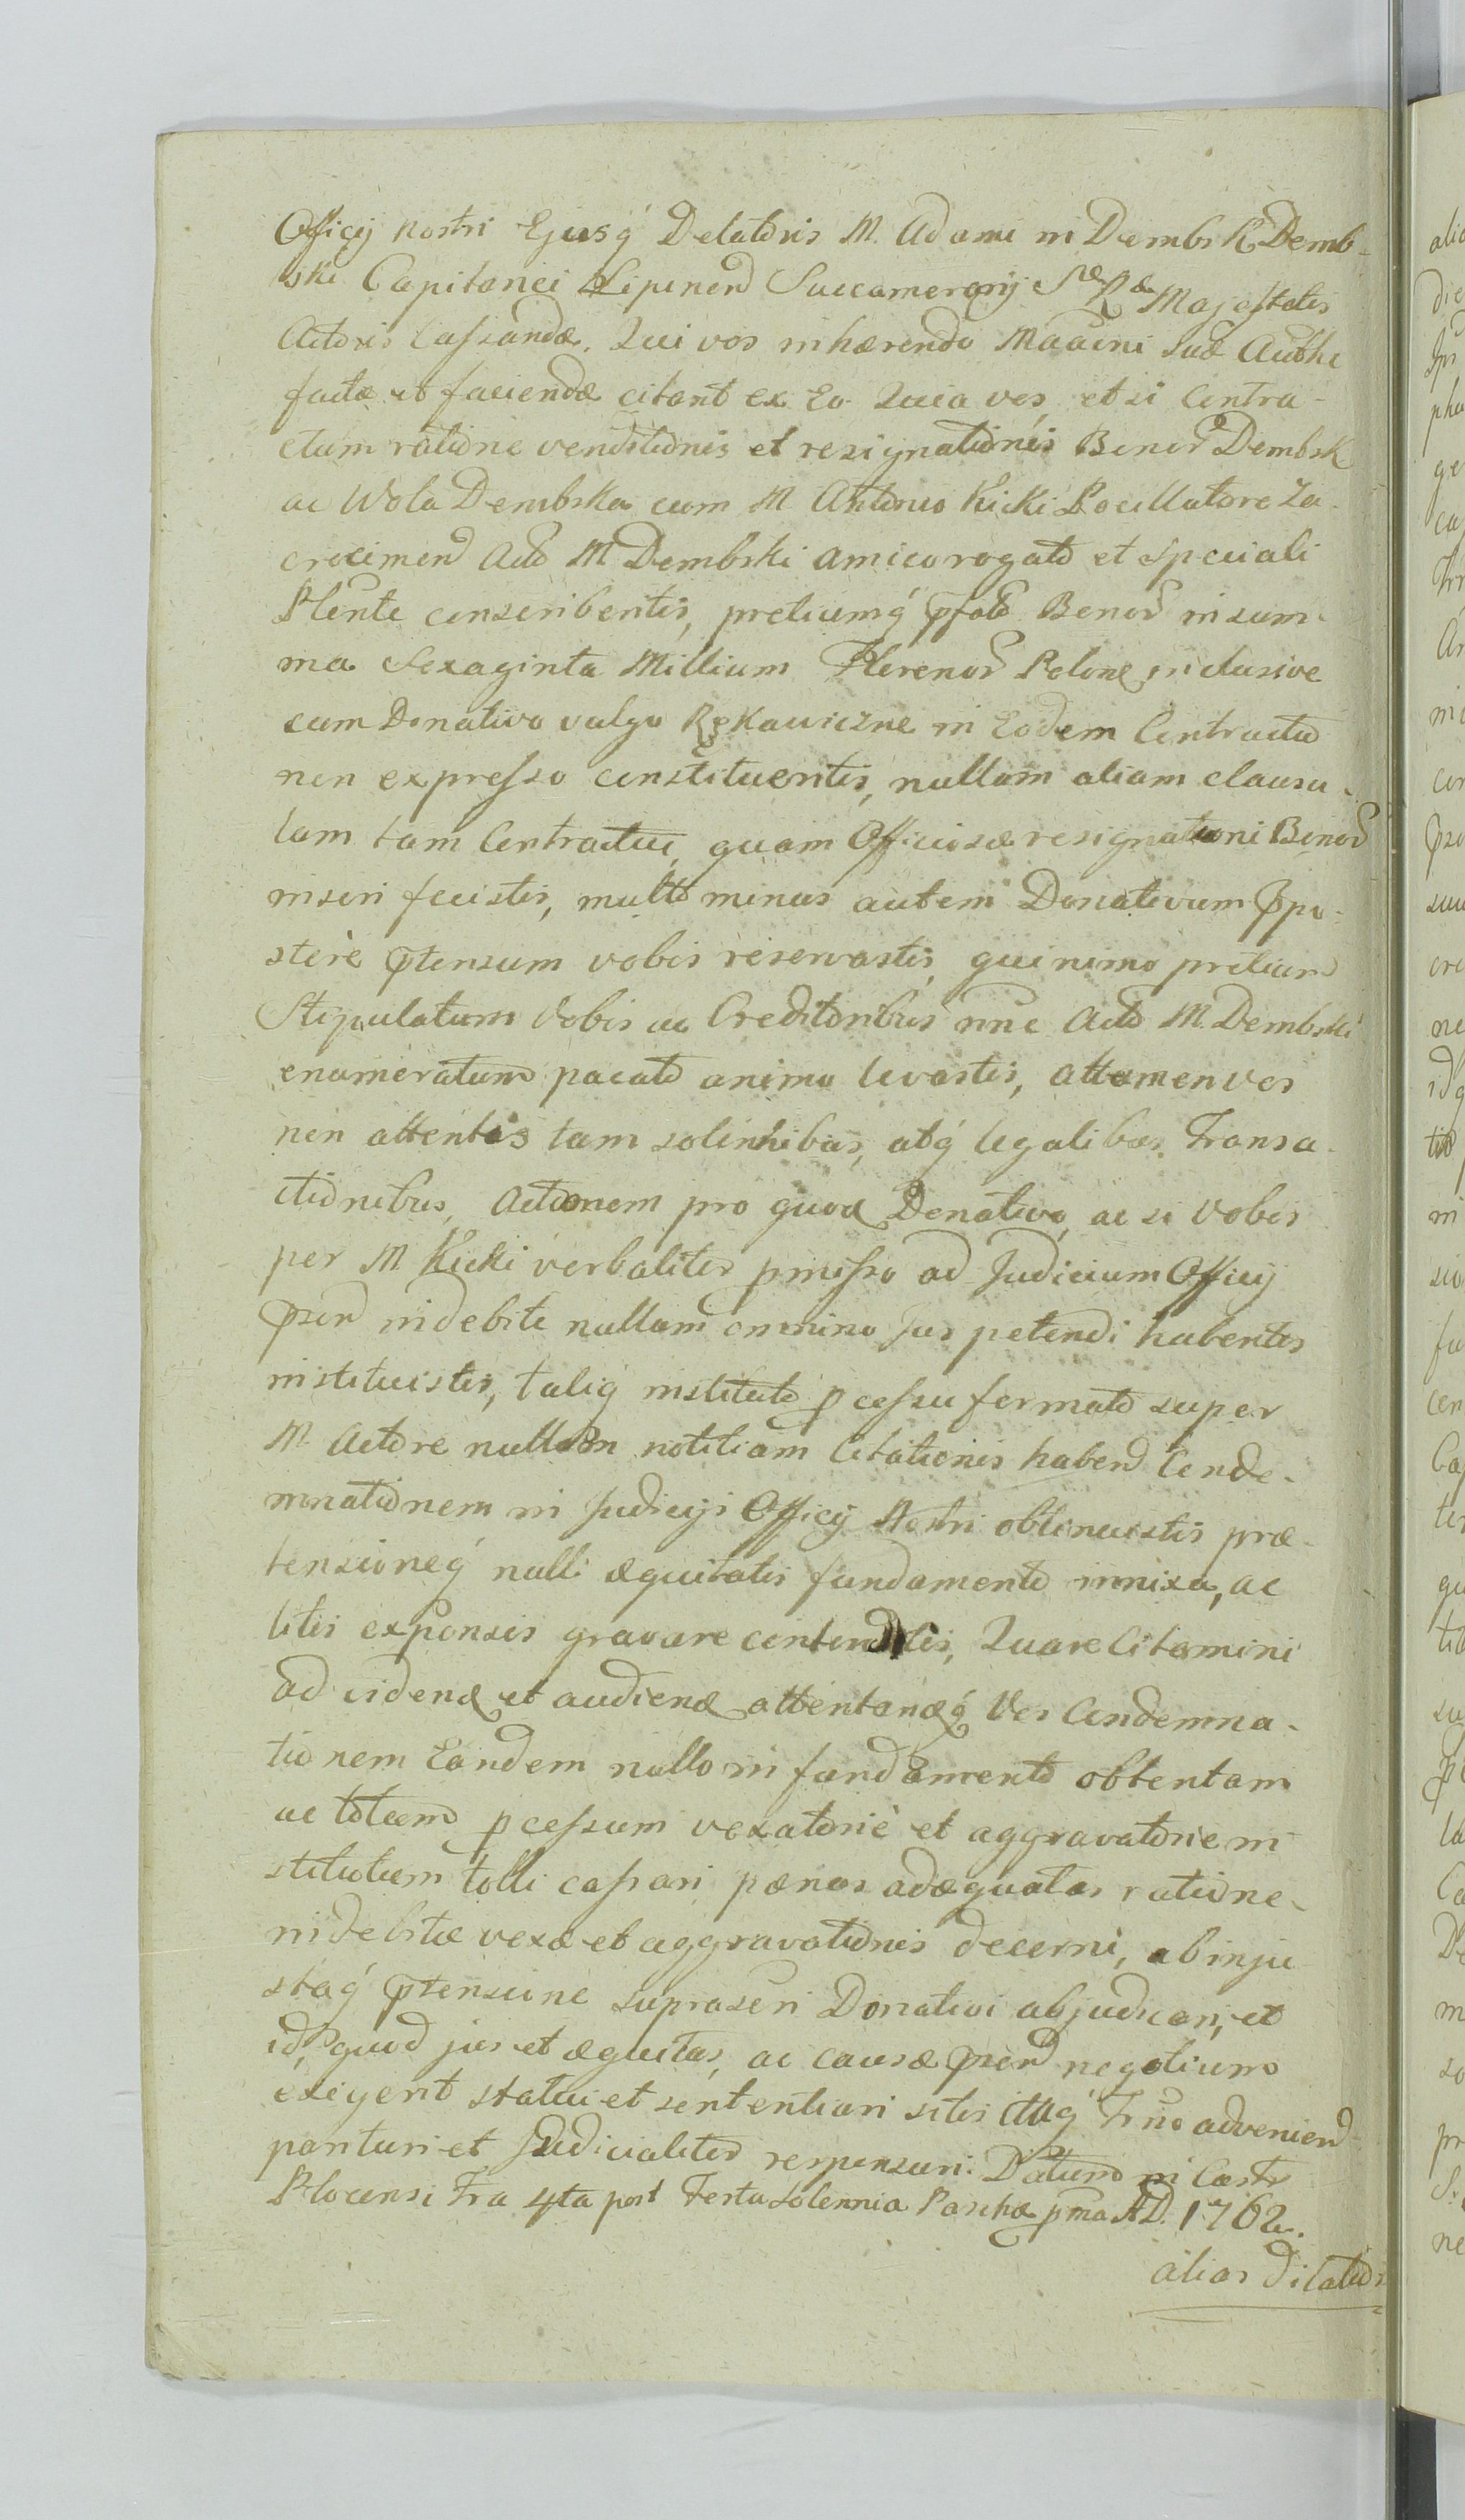 Officij nostri Ejusq́ Delatoris M. Adami in Dembsk Demb-
ski Capitanei Lipinen Succamerarij Sae Rae Majestatis
Actoris Cassandæ. Qui vos inhærendo Maaoni Suæ Authe
factæ et faciendæ citant ex Eo Quia vos, et si Contra-
ctum ratione venditionis et resignationis Bonor Dembsk
ac Wola Dembska cum M Antonio Kicki Pocillatore Za-
crocimen Actō M Dembski amico rogato et speciali
Plente conscribentis, pretiumq́ pfatō Bonor in sum-
ma Sexaginta Millium Florenor Polone inclusive
cum Donativo vulgo Rękawiczne in Eodem Contractu
non expresso constituentis, nullam aliam clausu-
lam tam Contractui, quam Officiosæ resignationi Bonor
inseri fecistis, multo minus autem Donativum ppo-
sterè ptensum vobis reservastis, quinimo pretium
Stipulatum Vobis ac Creditoribus nne Actō M. Dembski
enumeratum pacato animo levastis, attamen vos
non attentis tam solennibus, atq́ legalibus Transa-
ctionibus, Actionem pro quod Donativo, ac si Vobis
per M Kicki verbaliter pmisso ad Judicium Officij
psen indebite nullam omnino Jus petendi habentes
instituistis, taliq́ instituto pcessu formato super
M. Actore nullam notitiam Citationis haben Conde-
mnationem in Judicijs Officij Nostri obtinuistis præ-
tensioneq́ nulli æquitatis fundamento innixa, ac
litis expensis gravare contenditis, Quare Citamini
ad viden et audien attentanq́ Vos Condemna-
tionem Eandem nullo in fundamento obtentam
ac totum pcessum vexatoriè et aggravatorie in
stitutum tolli cassari pænas adæquatas ratione
indebitæ vexæ et aggravationis decerni, ab inju
staq́ ptensione suprascri Donativi abjudicari, et
id, quod jus et æquitas, ac causæ psen negotium
exigerit statui et sententiari sitis itaq́ Trno advenien
parituri et Judicialiter responsuri. Datum in Castr
Plocensi Fra 4ta post Festa Solennia Paschæ pma A.D. 1762.
alias dilatio